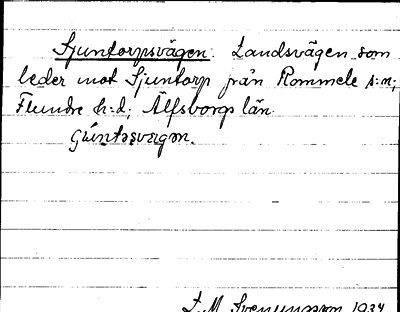 Sjuntorpsvägen. Landsvägen som
leder mot Sjuntorp från Rommele s:n;
Flundre h:d; Älfsborgs län.
L. M. Svenungsson 1934